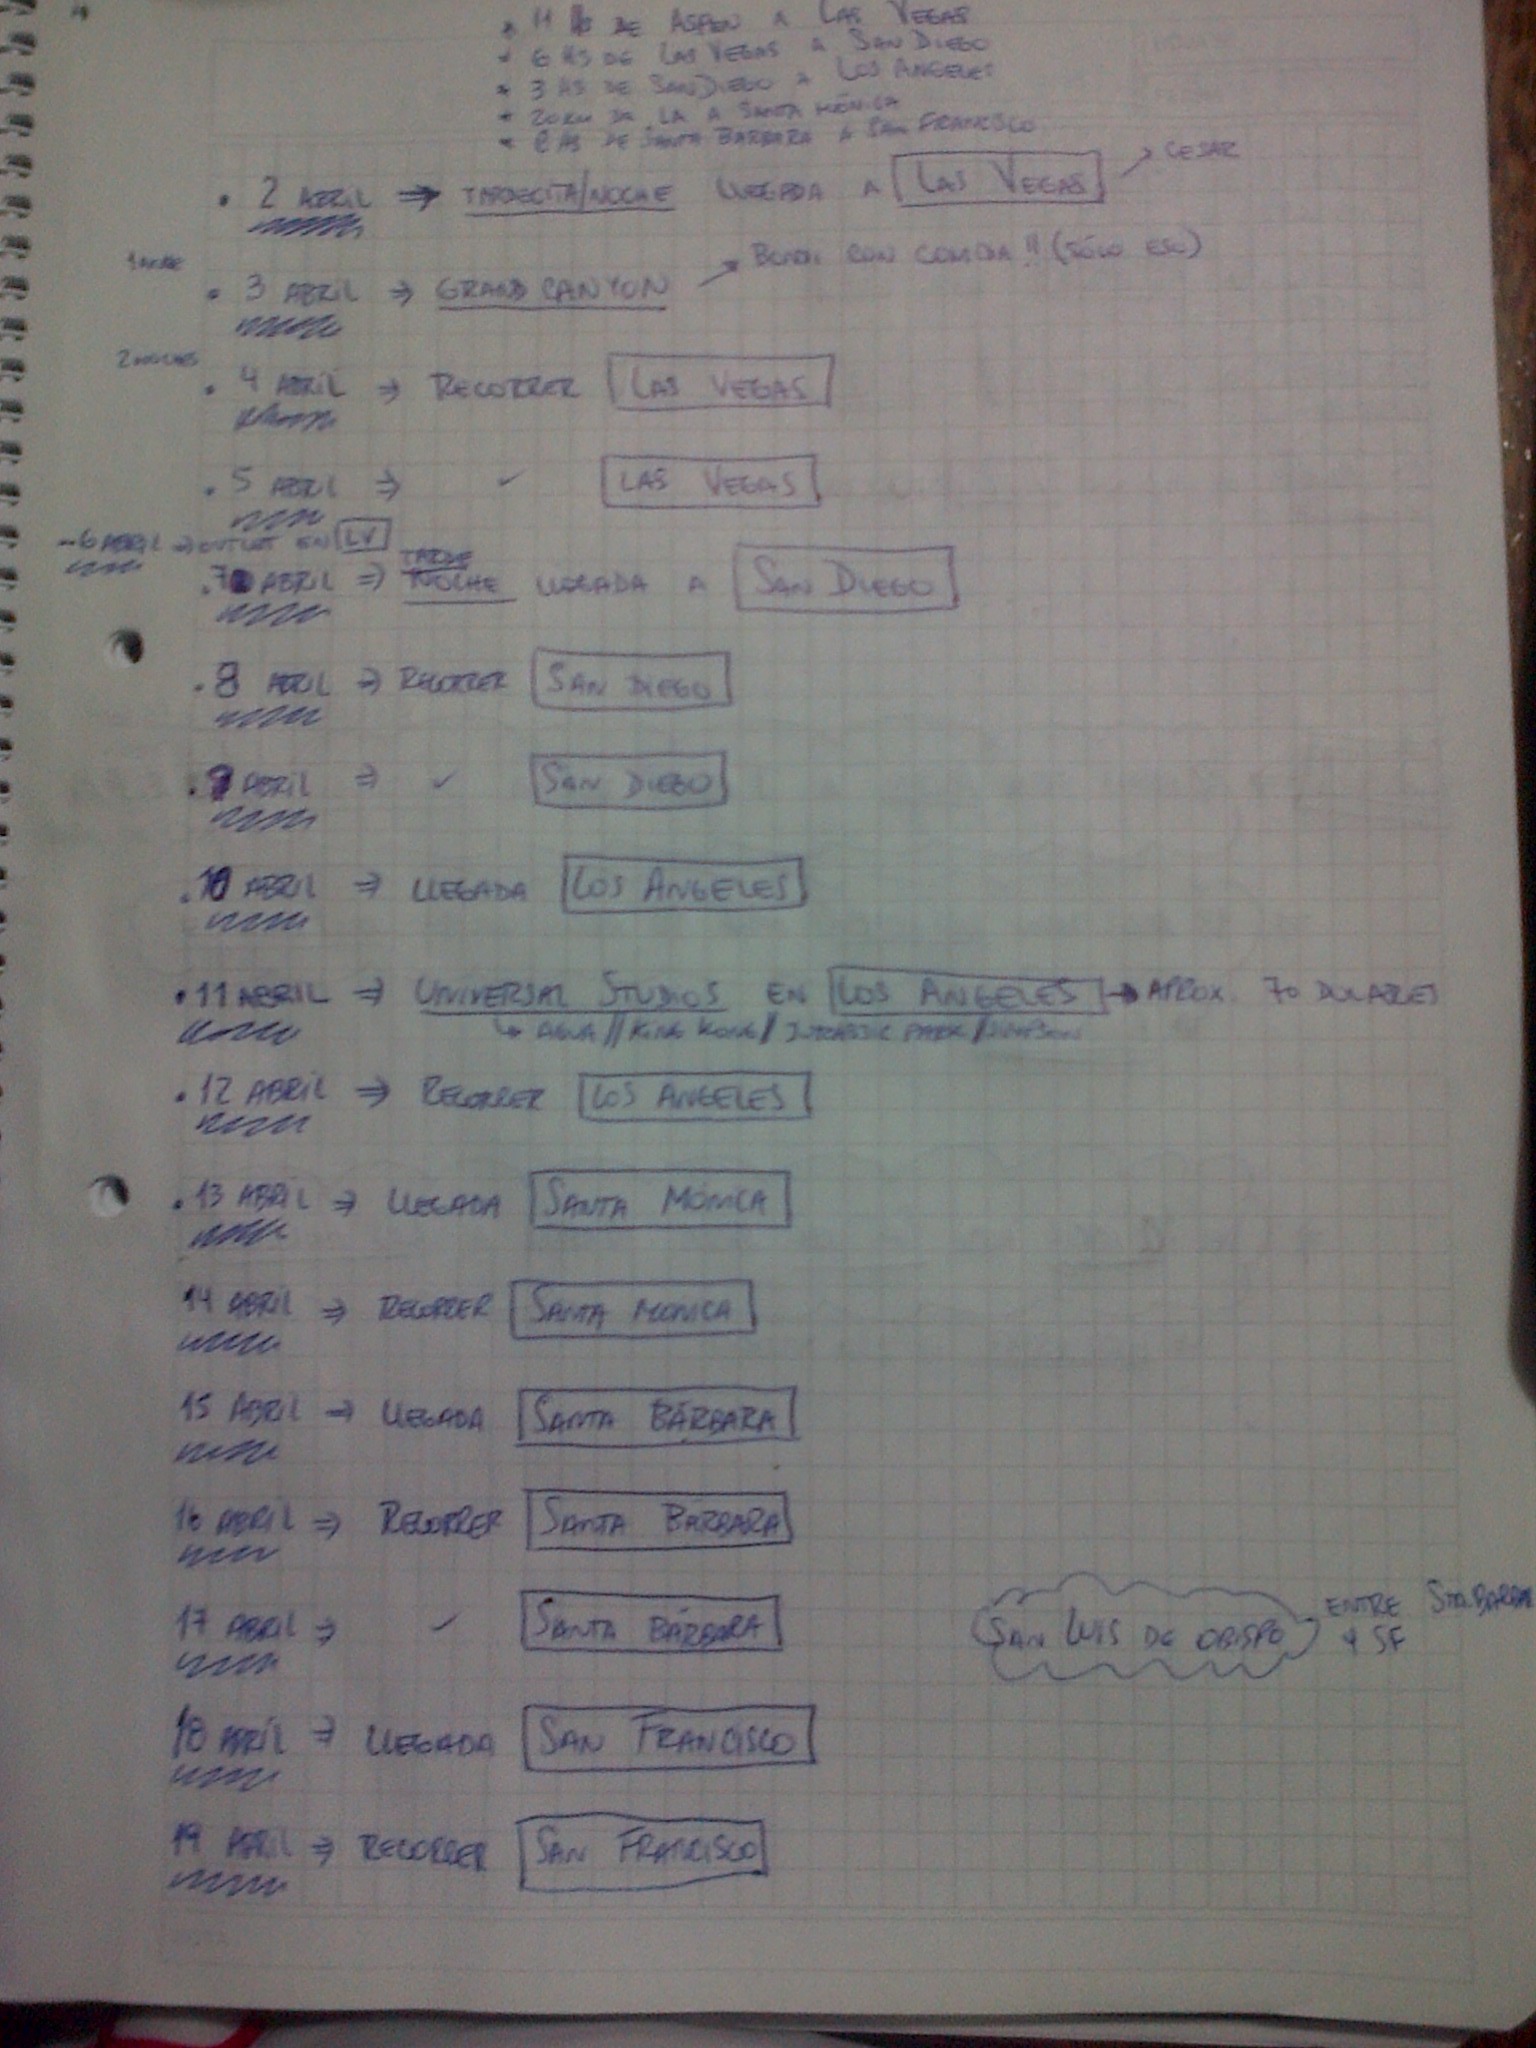 * 11 HS DE ASPEN A LAS VEGAS
* 6 HS DE LAS VEGAS A SAN DIEGO
* 3 HS DE SAN DIEGO A LOS ANGELES
* 20 KM DE LA A SANTA MÓNICA
* 8 HS DE SANTA BARBARA A SAN FRANCISCO
• 2 ABRIL ⇒ TARDECITA/NOCHE LLEGADA A LAS VEGAS → CESAR
• 3 ABRIL ⇒ GRAND CANYON → CON COMIDA!! (SÓLO ESO)
2 NOCHES
• 4 ABRIL ⇒ RECORRER LAS VEGAS
• 5 ABRIL ⇒ ✓ LAS VEGAS
- 6 ABRIL ⇒ OUTLET EN LV
• 7 ABRIL ⇒ TARDE NOCHE LLEGADA A SAN DIEGO
• 8 ABRIL ⇒ RECORRER SAN DIEGO
• 9 ABRIL ⇒ ✓ SAN DIEGO
• 10 ABRIL ⇒ LLEGADA LOS ANGELES
• 11 ABRIL ⇒ UNIVERSAL STUDIOS EN LOS ANGELES → APROX. 70 DOLARES
↳ AGUA // KING KONG // JURASSIC PARK //
• 12 ABRIL ⇒ RECORRER LOS ANGELES
• 13 ABRIL ⇒ LLEGADA SANTA MÓNICA
14 ABRIL ⇒ RECORRER SANTA MONICA
15 ABRIL ⇒ LLEGADA SANTA BÁRBARA
16 ABRIL ⇒ RECORRER SANTA BÁRBARA
17 ABRIL ⇒ ✓ SANTA BÁRBARA
SAN LUIS DE OBISPO ENTRE STA. BARBARA
Y SF
18 ABRIL ⇒ LLEGADA SAN FRANCISCO
19 ABRIL ⇒ RECORRER SAN FRANCISCO